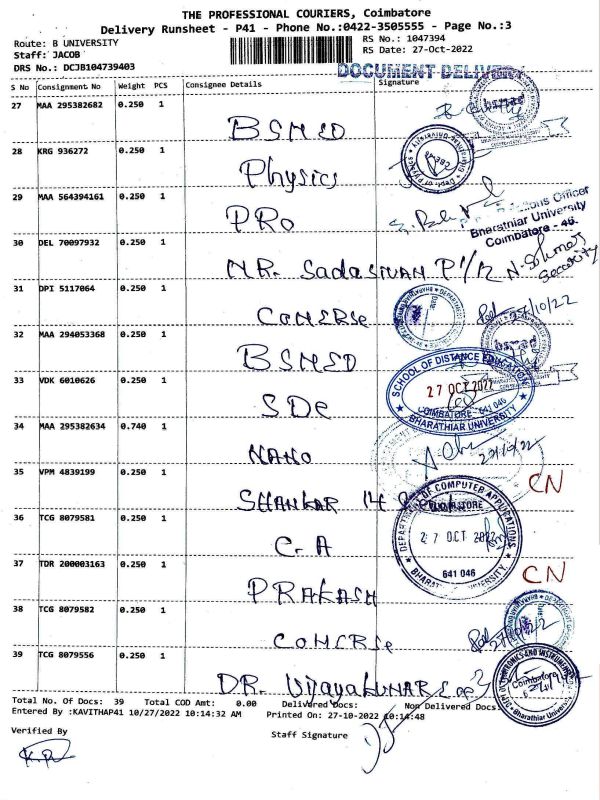 THE PROFESSIONAL COURIERS, Coimbatore
Delivery Runsheet - P41 - Phone No.:0422-3505555 - Page No.:3
Route: B UNIVERSITY
RS No.: 1047394
Staff: JACOB
RS Date: 27-Oct-2022
DRS No.: DCJB104739403
DOCUMENT DELIVE
S No Consignment No Weight PCS Consignee Details Signature
27 MAA 295382682 0.250 1
BSMED
bsmed
28 KRG 936272 0.250 1
Physics
29 MAA 564394161 0.250 1
PRO
ions Officer
Bharathiar University
Coimbatore - 46.
30 DEL 70097932 0.250 1
MR. Sadasivan P1/2
Security
31 DPI 5117064 0.250 1
COMERSe
27/10/22
32 MAA 294053368 0.250 1
BSMED
bsmed
33 VDK 6010626 0.250 1
SDe
SCHOOL OF DISTANCE EDUCATION
27 OCT 2022
COIMBATORE - 641 046
BHARATHIAR UNIVERSITY
34 MAA 295382634 0.740 1
NANO
27/10/22
35 VPM 4839199 0.250 1
SHANKAR 14
CN
36 TCG 8079581 0.250 1
C.A
DEPARTMENT OF COMPUTER APPLICATIONS
27 OCT 2022
641 046
37 TDR 200003163 0.250 1
PRAKASH
CN
38 TCG 8079582 0.250 1
COMERSe
39 TCG 8079556 0.250 1
DR. Vijayakumar
Coimbatore
Bharathiar University
Total No. Of Docs: 39 Total COD Amt: 0.00 Delivered Docs: Non Delivered Docs:
Entered By :KAVITHAP41 10/27/2022 10:14:32 AM Printed On: 27-10-2022 10:14:48
Verified By
Staff Signature